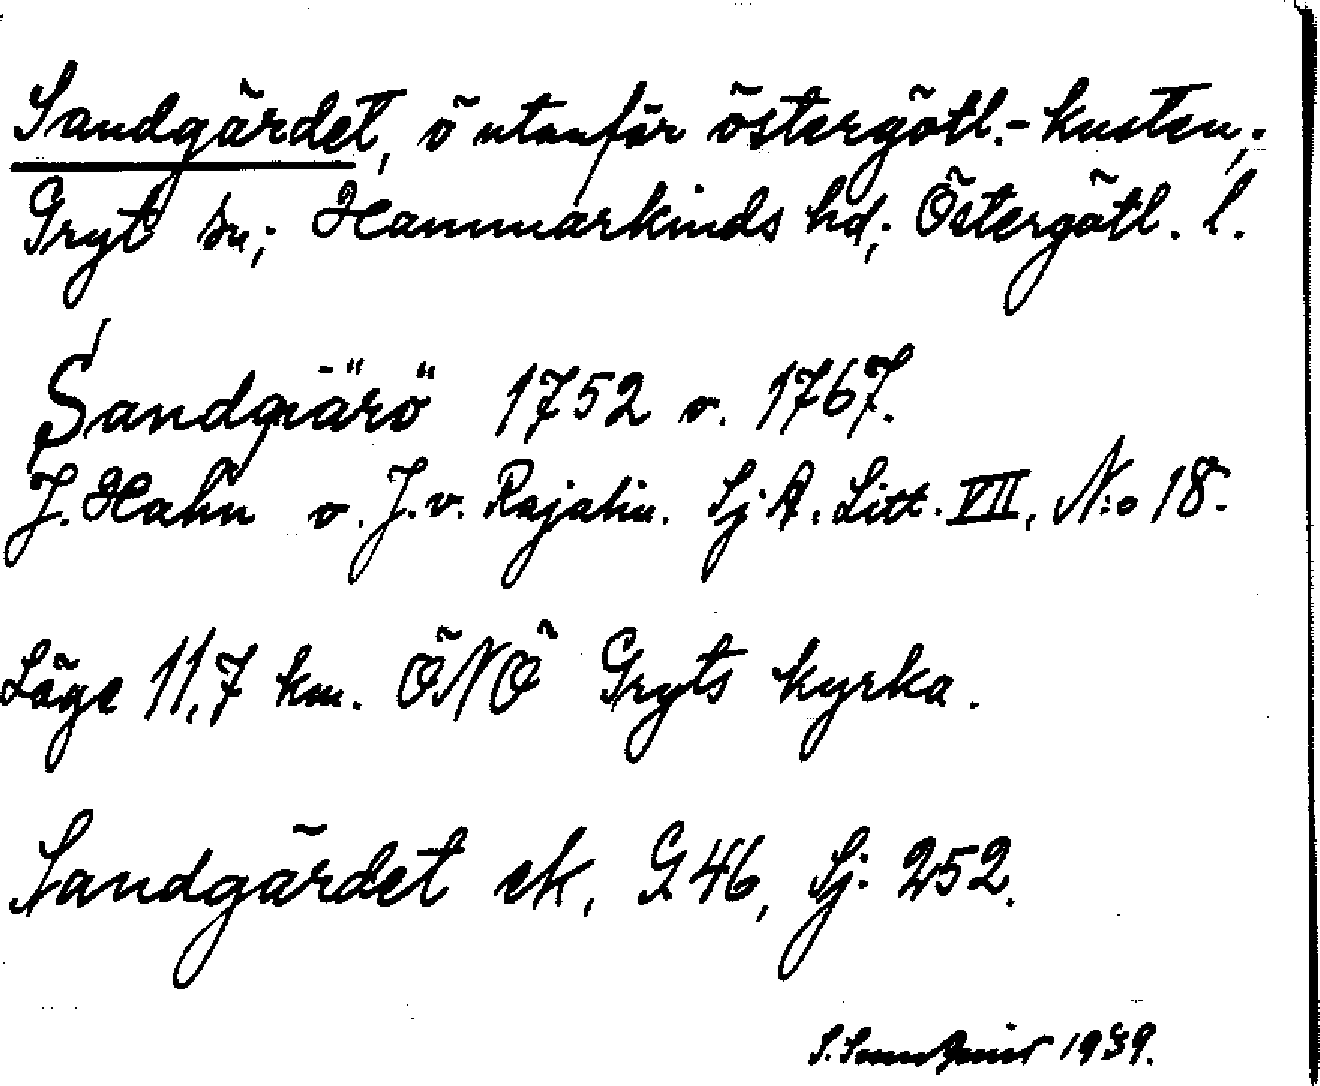 Sandgärdet, ö utanför östergötl.-kusten,.
Gryt sn; Hammarkinds hd; Östergötl. l.
Sandgiärö 1752 o. 1767.
J. Hahn o. J. v. Rajalin. Sj A. Litt. VII, N:o 18.
Läge 11,7 km. ÖNÖ Gryts kyrka.
Sandgärdet ek, G 46, Sj. 252.
S. 1939.